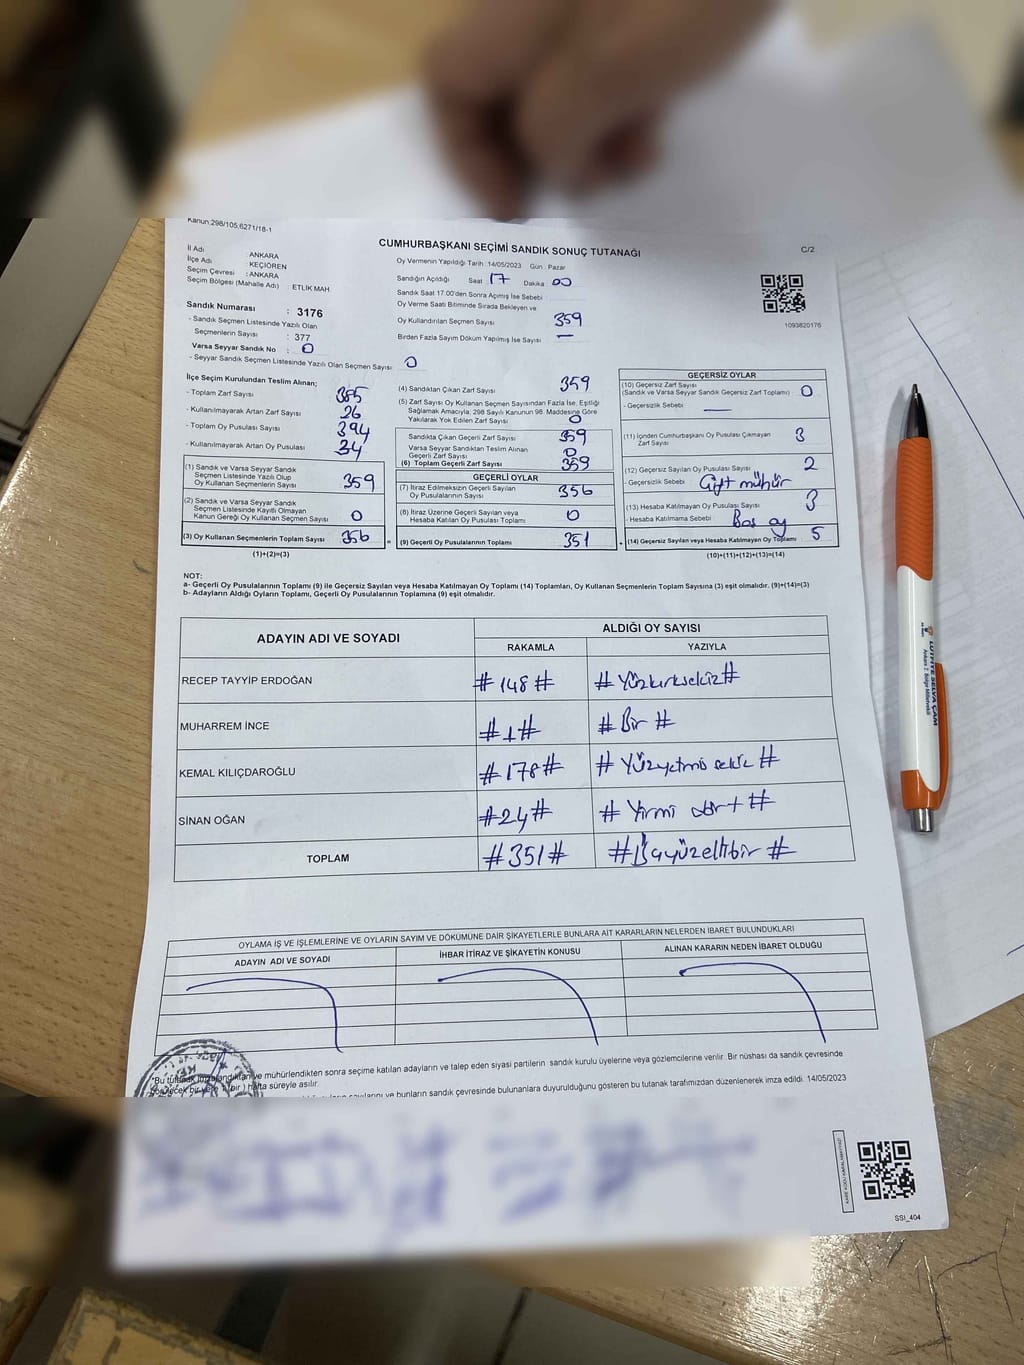 Kanun:298/105,6271/18-1
CUMHURBAŞKANI SEÇİMİ SANDIK SONUÇ TUTANAĞI
C/2
İl Adı : ANKARA
İlçe Adı : KEÇİÖREN
Seçim Çevresi : ANKARA
Seçim Bölgesi (Mahalle Adı) : ETLİK MAH.
Sandık Numarası : 3176
- Sandık Seçmen Listesinde Yazılı Olan
Seçmenlerin Sayısı : 377
Varsa Seyyar Sandık No : 0
- Seyyar Sandık Seçmen Listesinde Yazılı Olan Seçmen Sayısı : 0
Oy Vermenin Yapıldığı Tarih :14/05/2023 Gün : Pazar
Sandığın Açıldığı Saat 17 Dakika 00
Sandık Saat 17:00'den Sonra Açımış İse Sebebi
Oy Verme Saati Bitiminde Sırada Bekleyen ve
Oy Kullandırılan Seçmen Sayısı 359
Birden Fazla Sayım Döküm Yapılmış İse Sayısı —
1093820176
İlçe Seçim Kurulundan Teslim Alınan;
- Toplam Zarf Sayısı 385
- Kullanılmayarak Artan Zarf Sayısı 26
- Toplam Oy Pusulası Sayısı 394
- Kullanılmayarak Artan Oy Pusulası 34
(1) Sandık ve Varsa Seyyar Sandık
Seçmen Listesinde Yazılı Olup
Oy Kullanan Seçmenlerin Sayısı 359
(2) Sandık ve Varsa Seyyar Sandık
Seçmen Listesinde Kayıtlı Olmayan
Kanun Gereği Oy Kullanan Seçmen Sayısı 0
(3) Oy Kullanan Seçmenlerin Toplam Sayısı 356
(1)+(2)=(3)
(4) Sandıktan Çıkan Zarf Sayısı 359
(5) Zarf Sayısı Oy Kullanan Seçmen Sayısından Fazla İse, Eşitliği
Sağlamak Amacıyla; 298 Sayılı Kanunun 98. Maddesine Göre
Yakılarak Yok Edilen Zarf Sayısı 0
Sandıkta Çıkan Geçerli Zarf Sayısı 359
Varsa Seyyar Sandıktan Teslim Alınan
Geçerli Zarf Sayısı 0
(6) Toplam Geçerli Zarf Sayısı 359
GEÇERLİ OYLAR
(7) İtiraz Edilmeksizin Geçerli Sayılan
Oy Pusulalarının Sayısı 356
(8) İtiraz Üzerine Geçerli Sayılan veya
Hesaba Katılan Oy Pusulası Toplamı 0
= (9) Geçerli Oy Pusulalarının Toplamı 351
GEÇERSİZ OYLAR
(10) Geçersiz Zarf Sayısı
(Sandık ve Varsa Seyyar Sandık Geçersiz Zarf Toplamı) 0
- Geçersizlik Sebebi —
(11) İçinden Cumhurbaşkanı Oy Pusulası Çıkmayan
Zarf Sayısı 3
(12) Geçersiz Sayılan Oy Pusulası Sayısı 2
- Geçersizlik Sebebi Çift mühür
(13) Hesaba Katılmayan Oy Pusulası Sayısı 3
- Hesaba Katılmama Sebebi Boş oy
+ (14) Geçersiz Sayılan veya Hesaba Katılmayan Oy Toplamı 5
(10)+(11)+(12)+(13)=(14)
NOT:
a- Geçerli Oy Pusulalarının Toplamı (9) ile Geçersiz Sayılan veya Hesaba Katılmayan Oy Toplamı (14) Toplamları, Oy Kullanan Seçmenlerin Toplam Sayısına (3) eşit olmalıdır. (9)+(14)=(3)
b- Adayların Aldığı Oyların Toplamı, Geçerli Oy Pusulalarının Toplamına (9) eşit olmalıdır.
ADAYIN ADI VE SOYADI
ALDIĞI OY SAYISI
RAKAMLA YAZIYLA
RECEP TAYYİP ERDOĞAN # 148 # # Yüzkırksekiz #
MUHARREM İNCE # 1 # # Bir #
KEMAL KILIÇDAROĞLU # 178 # # Yüzyetmiş sekiz #
SİNAN OĞAN # 24 # # Yirmi dört #
TOPLAM # 351 # # Üçyüzellibir #
OYLAMA İŞ VE İŞLEMLERİNE VE OYLARIN SAYIM VE DÖKÜMÜNE DAİR ŞİKAYETLERLE BUNLARA AİT KARARLARIN NELERDEN İBARET BULUNDUKLARI
ADAYIN ADI VE SOYADI
İHBAR İTİRAZ VE ŞİKAYETİN KONUSU
ALINAN KARARIN NEDEN İBARET OLDUĞU
"Bu tutanak imzalandıktan ve mühürlendikten sonra seçime katılan adayların ve talep eden siyasi partilerin sandık kurulu üyelerine veya gözlemcilerine verilir. Bir nüshası da sandık çevresinde
bir hafta süreyle asılır.
ve bunların sandık çevresinde bulunanlara duyurulduğunu gösteren bu tutanak tarafımızdan düzenlenerek imza edildi. 14/05/2023
SSI_404
LÜTFİYE SELVA ÇAM
Ankara 2. Bölge Milletvekili